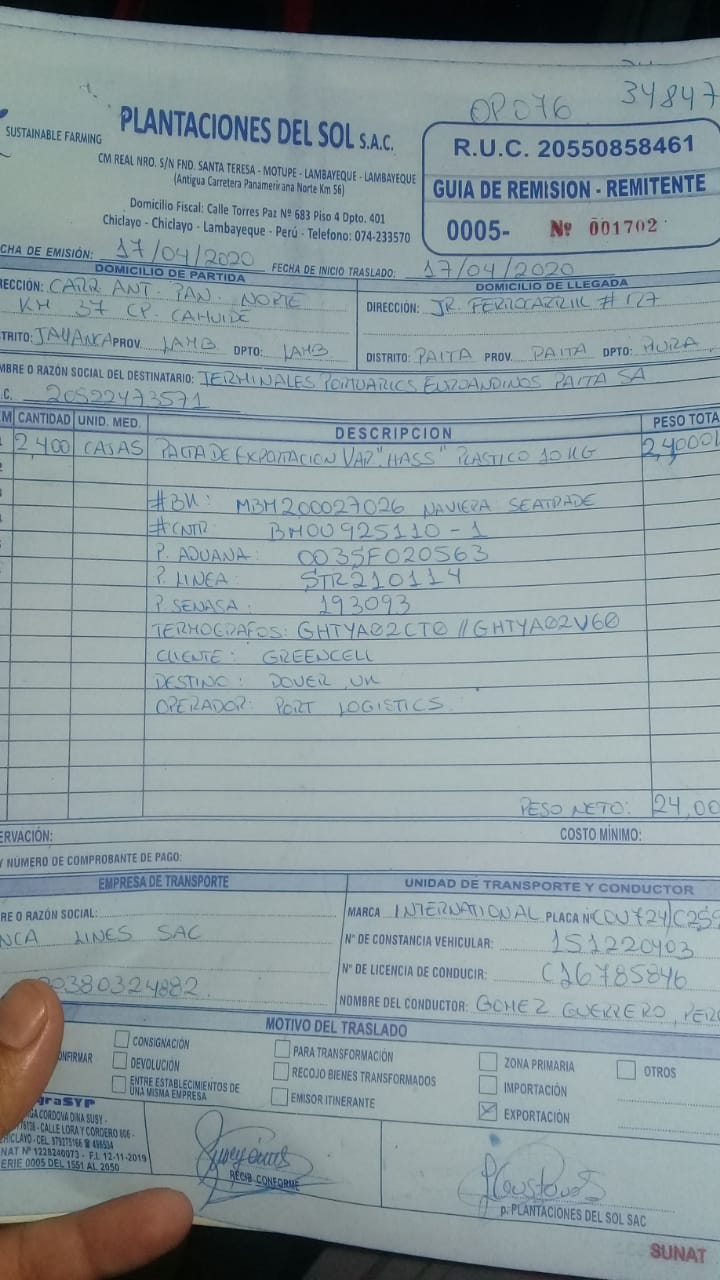 OP076 34847
SUSTAINABLE FARMING
PLANTACIONES DEL SOL S.A.C.
CM REAL NRO. S/N FND. SANTA TERESA - MOTUPE - LAMBAYEQUE - LAMBAYEQUE
(Antigua Carretera Panamerirana Norte Km 56)
Domicilio Fiscal: Calle Torres Paz Nº 683 Piso 4 Dpto. 401
Chiclayo - Chiclayo - Lambayeque - Perú - Telefono: 074-233570
R.U.C. 20550858461
GUIA DE REMISION - REMITENTE
0005- Nº 001702
CHA DE EMISIÓN: 17/04/2020 FECHA DE INICIO TRASLADO: 17/04/2020
DOMICILIO DE PARTIDA
RECCIÓN: CARR ANT. PAN. NORTE
KM 37 CP. CAHUIDE
TRITO: JAYANCA PROV. LAMB DPTO: LAMB
DOMICILIO DE LLEGADA
DIRECCIÓN: JR. FERROCARRIL # 127
DISTRITO: PAITA PROV. PAITA DPTO: PIURA
MBRE O RAZÓN SOCIAL DEL DESTINATARIO: TERMINALES PORTUARIOS EUROANDINOS PAITA SA
.C. 20522473571
M CANTIDAD UNID. MED. DESCRIPCION PESO TOTA
2,400 CAJAS PALTA DE EXPORTACION VAR. "HASS" PLASTICO 10 KG
#BK: MBM200027026 NAVIERA SEATRADE
#CNTR: BMOU925110-1
P. ADUANA: 0035F020563
P. LINEA: STR210114
P. SENASA: 193093
TERMOGRAFOS: GHTYA02CT0 // GHTYA02V60
CLIENTE: GREENCELL
DESTINO: DOVER, UK
OPERADOR: PORT LOGISTICS
PESO NETO: 24,00
ERVACIÓN: COSTO MÍNIMO:
Y NÚMERO DE COMPROBANTE DE PAGO:
EMPRESA DE TRANSPORTE
RE O RAZÓN SOCIAL:
NCA LINES SAC
0380324882
UNIDAD DE TRANSPORTE Y CONDUCTOR
MARCA INTERNATIONAL PLACA Nº COV724/C259
Nº DE CONSTANCIA VEHICULAR: 151220403
Nº DE LICENCIA DE CONDUCIR: C16785846
NOMBRE DEL CONDUCTOR: GOMEZ GUERRERO, PEDR
MOTIVO DEL TRASLADO
ONFIRMAR
CONSIGNACIÓN
DEVOLUCIÓN
ENTRE ESTABLECIMIENTOS DE
UNA MISMA EMPRESA
PARA TRANSFORMACIÓN
RECOJO BIENES TRANSFORMADOS
EMISOR ITINERANTE
ZONA PRIMARIA
IMPORTACIÓN
EXPORTACIÓN
OTROS
graSYP
GA CORDOVA DINA SUSY -
- CALLE LORA Y CORDERO 606 -
HICLAYO - CEL. 979275166
NAT Nº 1228240073 - F.I. 12-11-2019
ERIE 0005 DEL 1551 AL 2050
RECIB. CONFORME
p. PLANTACIONES DEL SOL SAC
SUNAT